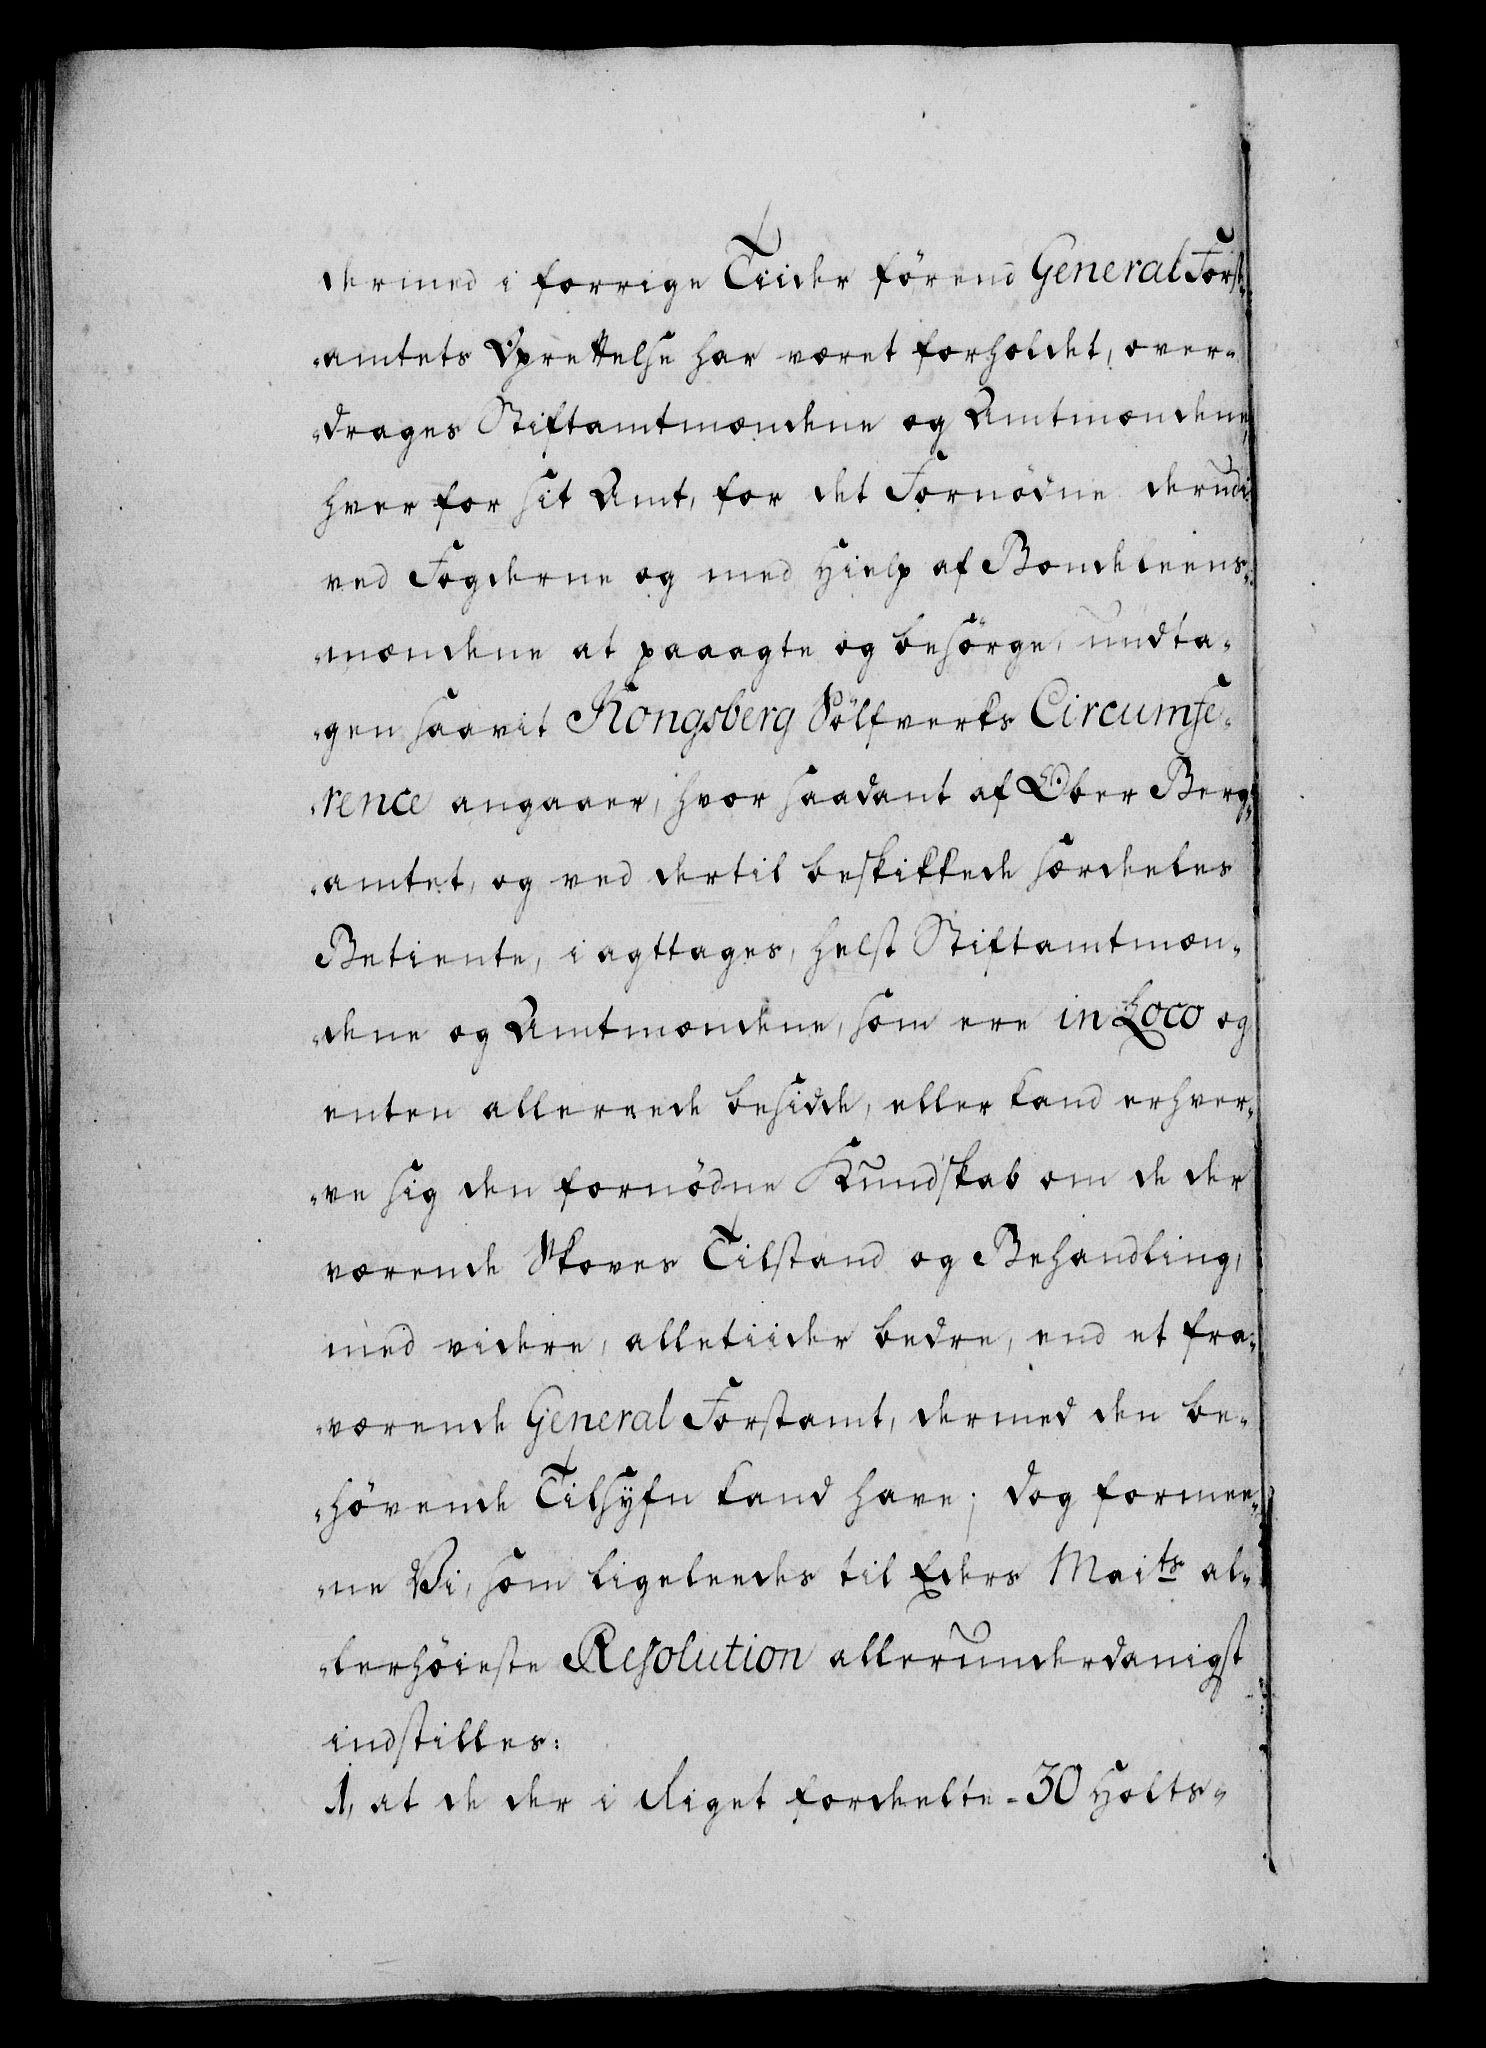 dermed i forrige Tiider förend General Forst-
amtets Oprettelse har været forholdet, over-
drages Stiftamtmændene og Amtmændene,
hver for sit Amt, for det Fornödne derudi
ved Fogderne og med Hielp af Bondeleens-
mændene at paaagte og besörge, undta-
gen saavit Kongsberg Sölfverks Circumfe-
rence angaaer, hvor saadant af Ober Berg-
amtet, og ved dertil beskikkede særdeles
Betiente, i agttages, helst Stiftamtmæn-
dene og Amtmændene, som ere in Loco og
enten allereede besidde, eller kand erhver-
ve sig den fornödne Kundskab om de der
værende Skoves Tilstand og Behandling,
med videre, alletiider bedre, end et fra-
værende General Forstamt, dermed den be-
hövende Tilsyfn kand have; dog formee-
ne Vi, som ligeleedes til Eders Maits al-
lerhöieste Resolution allerunderdanigst
indstilles:
1, at de der i Riget fordeelte 30 Holts-